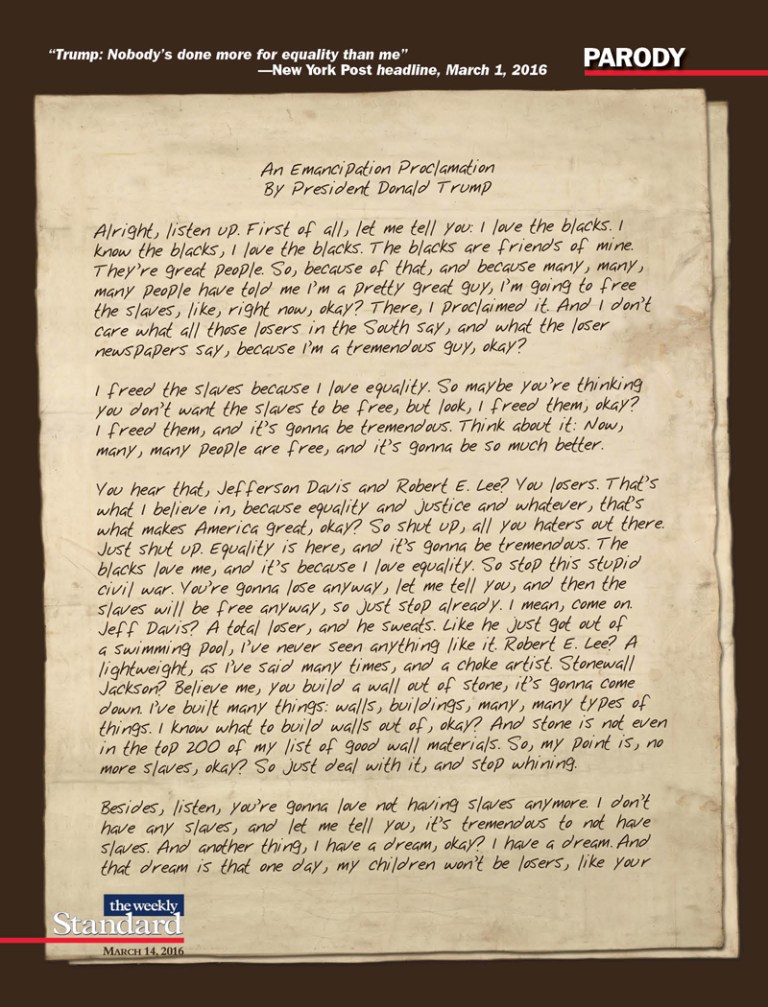 “Trump: Nobody’s done more for equality than me”
—New York Post headline, March 1, 2016
PARODY
An Emancipation Proclamation
By President Donald Trump
Alright, listen up. First of all, let me tell you: I love the blacks. I
know the blacks, I love the blacks. The blacks are friends of mine.
They’re great people. So, because of that, and because many, many,
many people have told me I’m a pretty great guy, I’m going to free
the slaves, like, right now, okay? There, I proclaimed it. And I don’t
care what all those losers in the South say, and what the loser
newspapers say, because I’m a tremendous guy, okay?
I freed the slaves because I love equality. So maybe you’re thinking
you don’t want the slaves to be free, but look, I freed them, okay?
I freed them, and it’s gonna be tremendous. Think about it: Now,
many, many people are free, and it’s gonna be so much better.
You hear that, Jefferson Davis and Robert E. Lee? You losers. That’s
what I believe in, because equality and justice and whatever, that’s
what makes America great, okay? So shut up, all you haters out there.
Just shut up. Equality is here, and it’s gonna be tremendous. The
blacks love me, and it’s because I love equality. So stop this stupid
civil war. You’re gonna lose anyway, let me tell you, and then the
slaves will be free anyway, so just stop already. I mean, come on.
Jeff Davis? A total loser, and he sweats. Like he just got out of
a swimming pool, I’ve never seen anything like it. Robert E. Lee? A
lightweight, as I’ve said many times, and a choke artist. Stonewall
Jackson? Believe me, you build a wall out of stone, it’s gonna come
down. I’ve built many things: walls, buildings, many, many types of
things. I know what to build walls out of, okay? And stone is not even
in the top 200 of my list of good wall materials. So, my point is, no
more slaves, okay? So just deal with it, and stop whining.
Besides, listen, you’re gonna love not having slaves anymore. I don’t
have any slaves, and let me tell you, it’s tremendous to not have
slaves. And another thing, I have a dream, okay? I have a dream. And
that dream is that one day, my children won’t be losers, like your
the weekly
Standard
MARCH 14, 2016